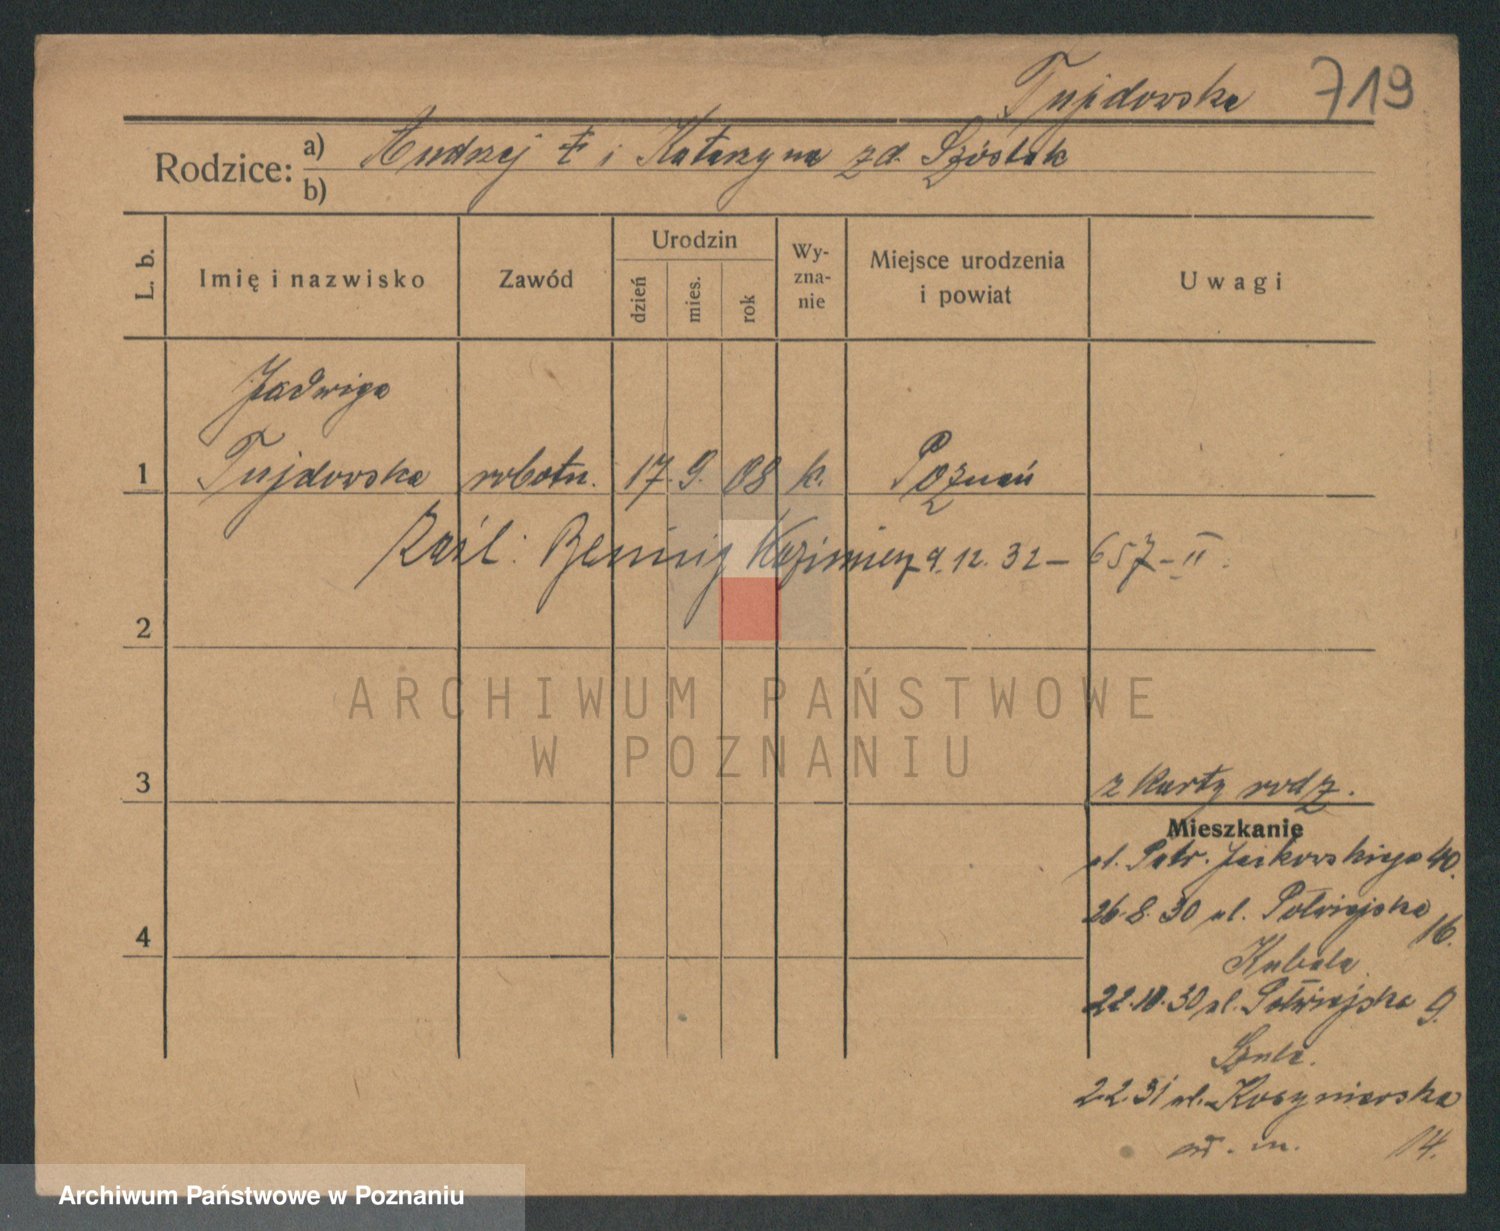 Tujdowska 719
Rodzice: a) Andrzej † i Katarzyna zd. Szóstak
b)
L. b. Imię i nazwisko Zawód Urodzin dzień mies. rok Wyznanie Miejsce urodzenia i powiat Uwagi
Jadwiga
1 Tujdowska robotn. 17. 9. 08 k. Poznań
Kazimierz 9. 12. 32 – 657 – II
2
ARCHIWUM PAŃSTWOWE
W POZNANIU
3 z karty rodz.
Mieszkanie
ul. Patr. Jackowskiego 40.
4 26.8.30 ul. Półwiejska 16.
Kubala
22.10.30 ul. Półwiejska 9.
Szulc.
2.2.31 ul. Kosynierska
14.
Archiwum Państwowe w Poznaniu